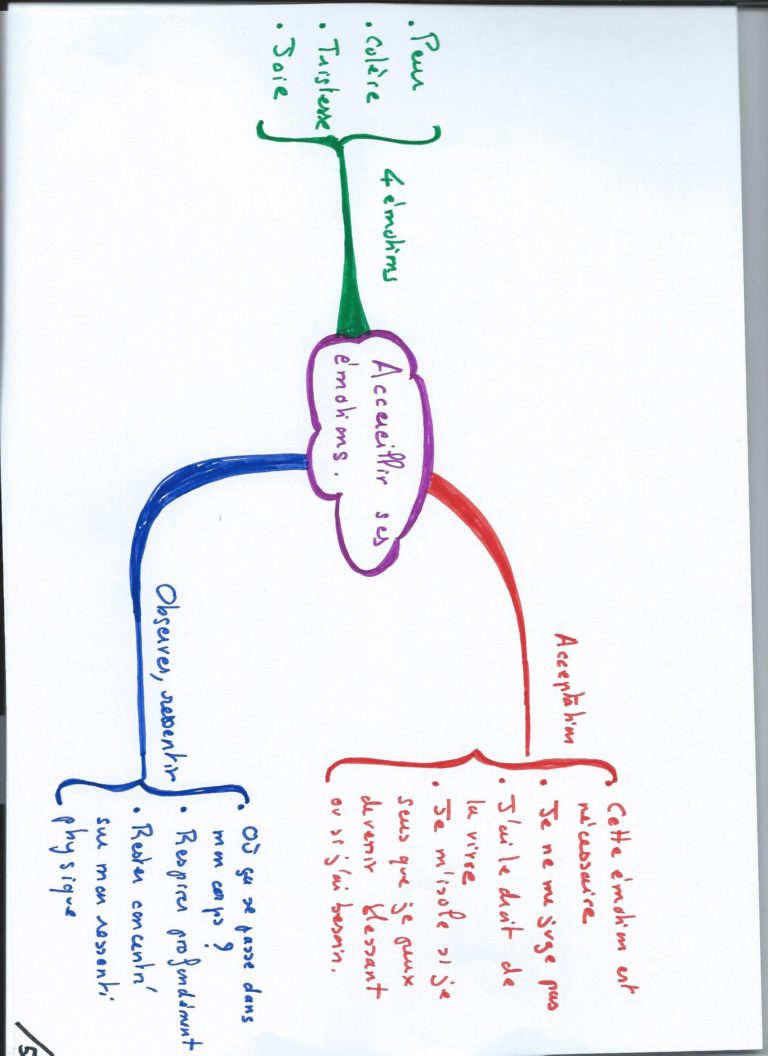 Accueillir ses
émotions.
4 émotions
• Peur
• Colère
• Tristesse
• Joie
Acceptation
• Cette émotion est
nécessaire
• Je ne me juge pas
• J'ai le droit de
la vivre
• Je m'isole si je
sens que je peux
devenir blessant
ou si j'ai besoin.
Observer, ressentir
• Où ça se passe dans
mon corps ?
• Respirer profondément
• Rester concentré
sur mon ressenti
physique
/5